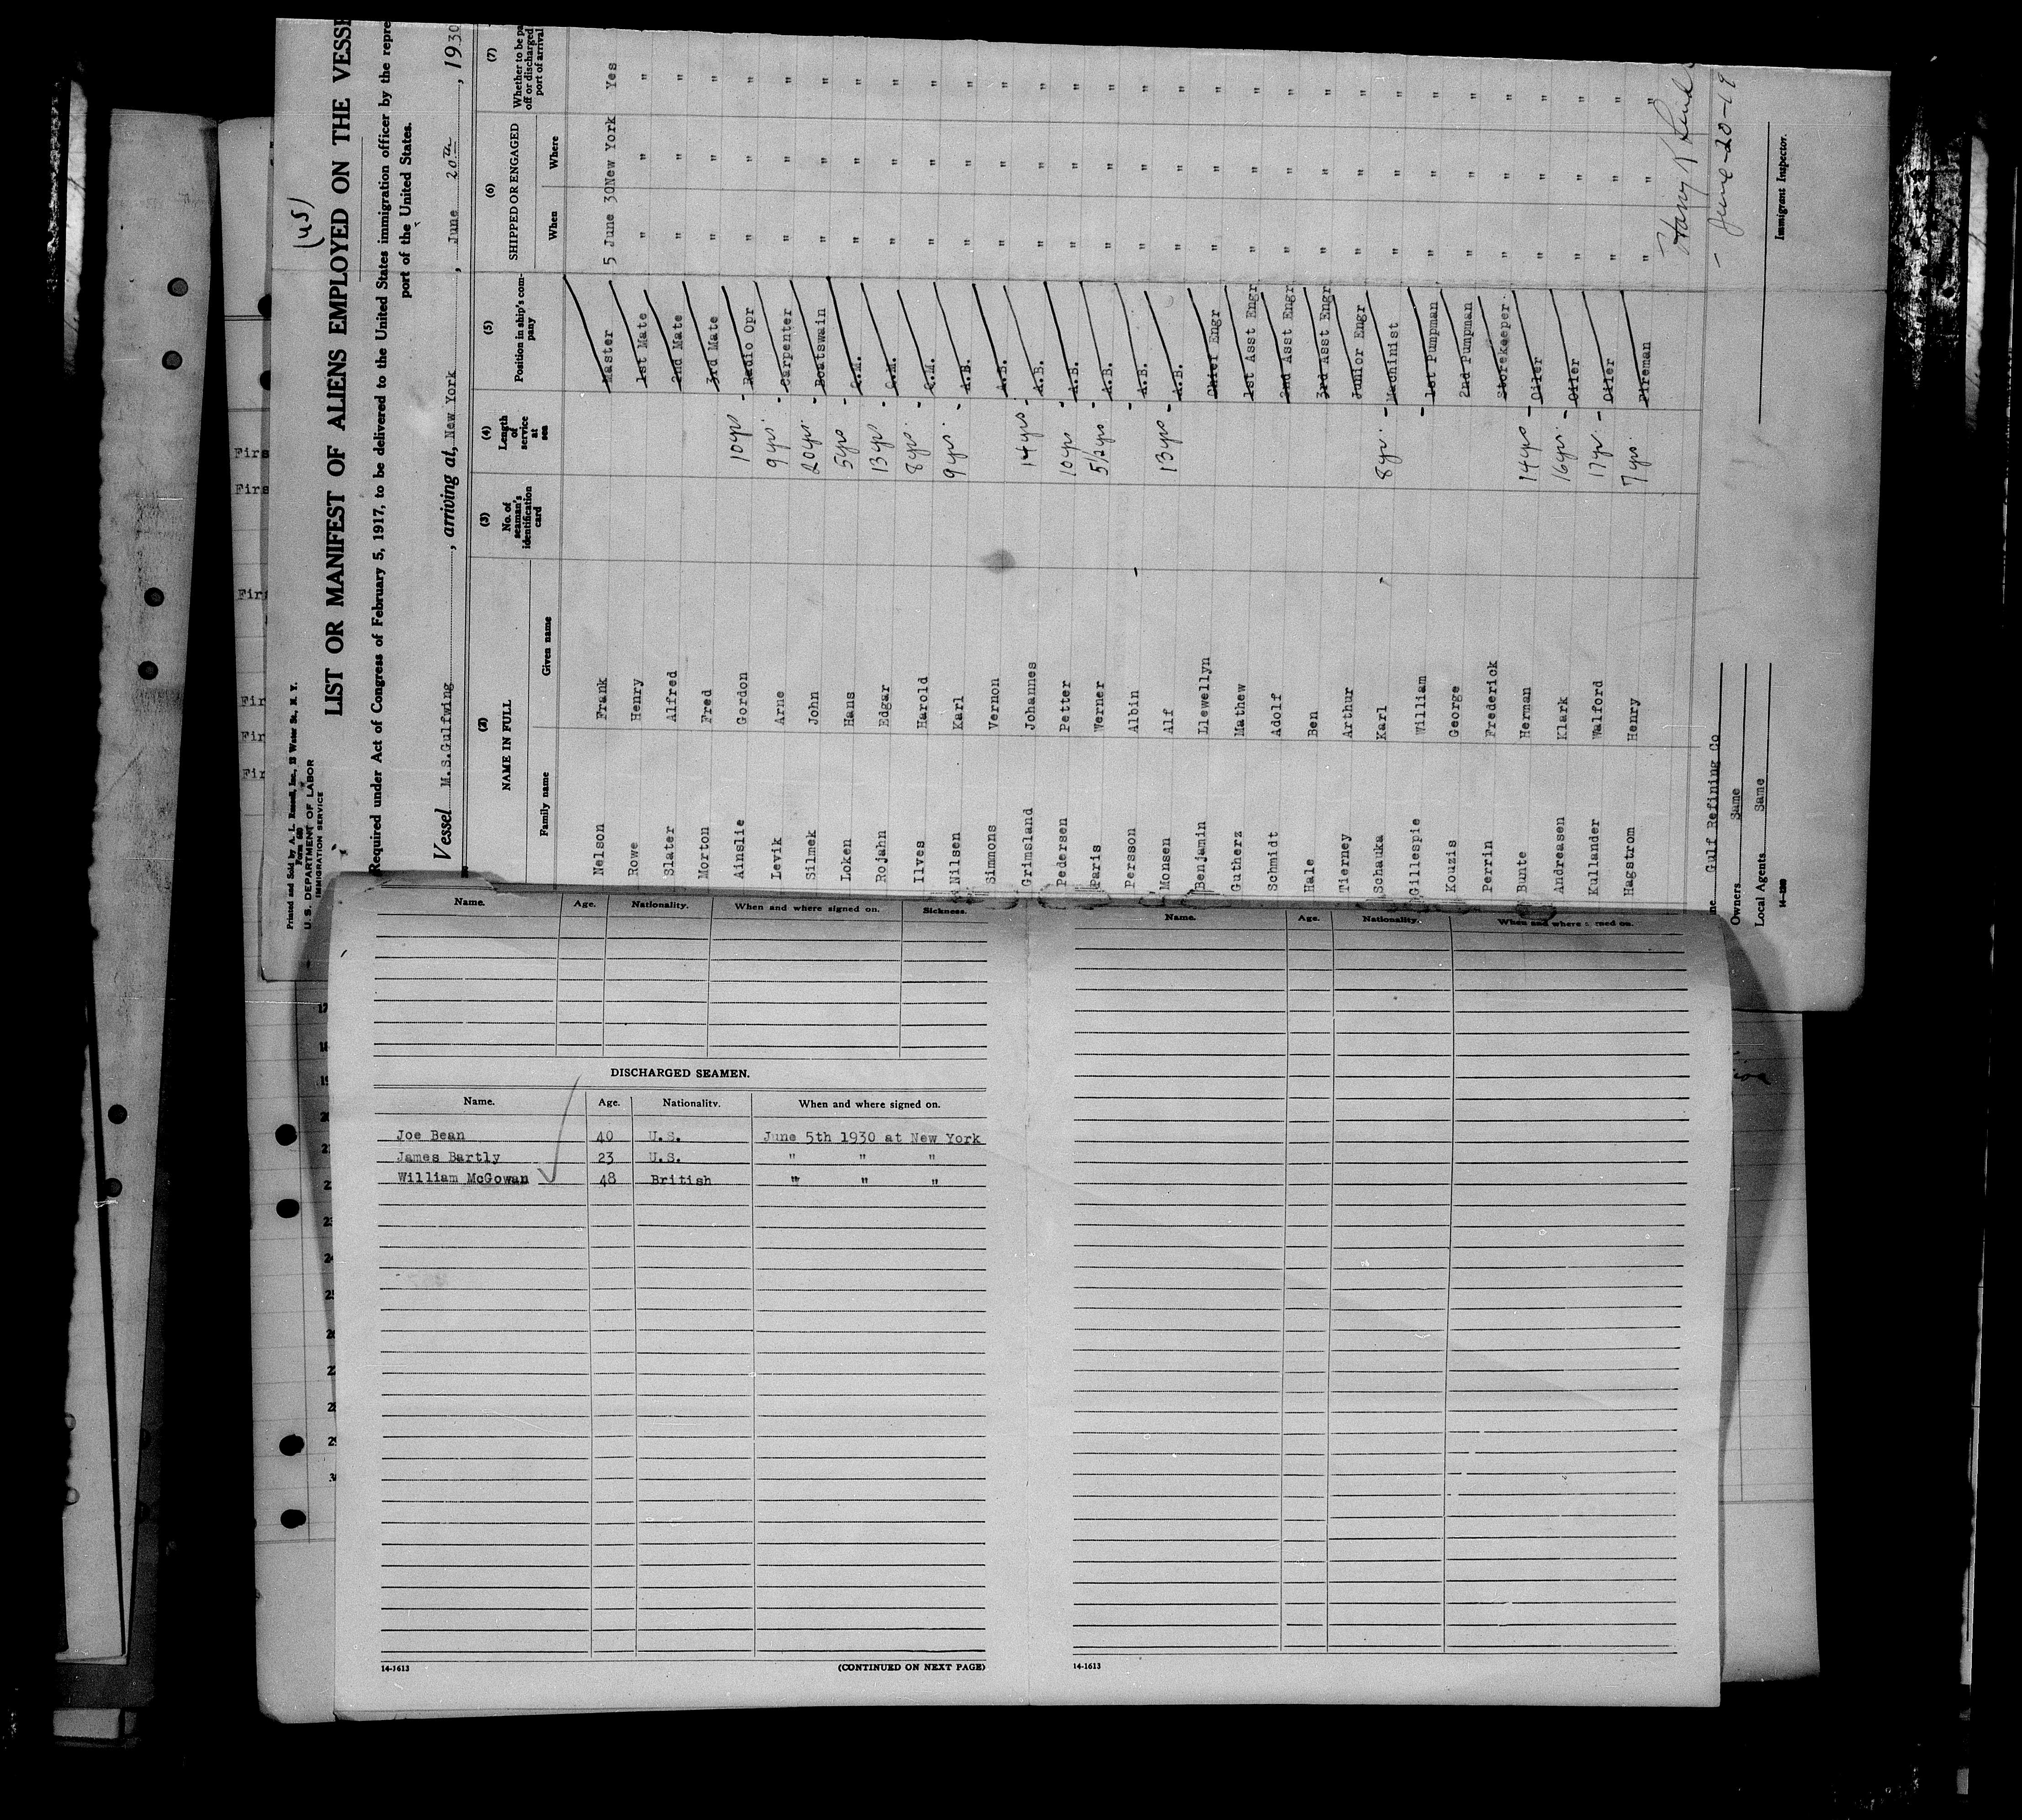 Printed and Sold by A. L. Russell, Inc., 13 Water St., N. Y.
Form 680
U. S. DEPARTMENT OF LABOR
IMMIGRATION SERVICE
(us)
LIST OR MANIFEST OF ALIENS EMPLOYED ON THE VESSE
Required under Act of Congress of February 5, 1917, to be delivered to the United States immigration officer by the repre
port of the United States.
Vessel M.S.Gulfwing, arriving at, New York, June 20th, 1930
(2) (3) (4) (5) (6) (7)
NAME IN FULL No. of seaman's identification card Length of service at sea Position in ship's company SHIPPED OR ENGAGED Whether to be pa off or discharged port of arrival
Family name Given name When Where
Nelson Frank Master 5 June 30 New York Yes
Rowe Henry 1st Mate " " "
Slater Alfred 2nd Mate " " "
Morton Fred 3rd Mate " " "
Ainslie Gordon 10 yrs - Radio Opr " " "
Levik Arne 9 yrs. - Carpenter " " "
Silmek John 20 yrs. - Boatswain " " "
Loken Hans 5 yrs - Q.M. " " "
Rojahn Edgar 13 yrs - Q.M. " " "
Ilves Harold 8 yrs. - Q.M. " " "
Nilsen Karl 9 yrs. - A.B. " " "
Simmons Vernon A.B. " " "
Grimsland Johannes 14 yrs. - A.B. " " "
Pedersen Petter 10 yrs - A.B. " " "
Paris Werner 5 1/2 yrs - A.B. " " "
Persson Albin - A.B. " " "
Monsen Alf 13 yrs - A.B. " " "
Benjamin Llewellyn Chief Engr " " "
Gutherz Mathew 1st Asst Engr " " "
Schmidt Adolf 2nd Asst Engr " " "
Hale Ben 3rd Asst Engr " " "
Tierney Arthur Junior Engr " " "
Schauka Karl 8 yr. - Machinist " " "
Gillespie William - 1st Pumpman " " "
Kouzis George 2nd Pumpman " " "
Perrin Frederick Storekeeper. " " "
Bunte Herman 14 yrs - Oiler " " "
Andreasen Klark 16 yr. - Oiler " " "
Kullander Walford 17 yr. - Oiler " " "
Hagstrom Henry 7 yrs. Fireman " " "
Harry R
- June - 20 - 19
ne Gulf Refining Co
Owners Same
Local Agents Same
Immigrant Inspector.
14-1280
Firs
Firs
Firs
Fir
Fir
Fir
Name. Age. Nationality. When and where signed on. Sickness.
DISCHARGED SEAMEN.
Name. Age. Nationality. When and where signed on.
Joe Bean 40 U.S. June 5th 1930 at New York
James Bartly 23 U.S. " " "
William McGowan 48 British " " "
14-1613 (CONTINUED ON NEXT PAGE)
Name. Age. Nationality. When and where signed on.
14-1613
17
18
19
20
21
22
23
24
25
26
27
28
29
30